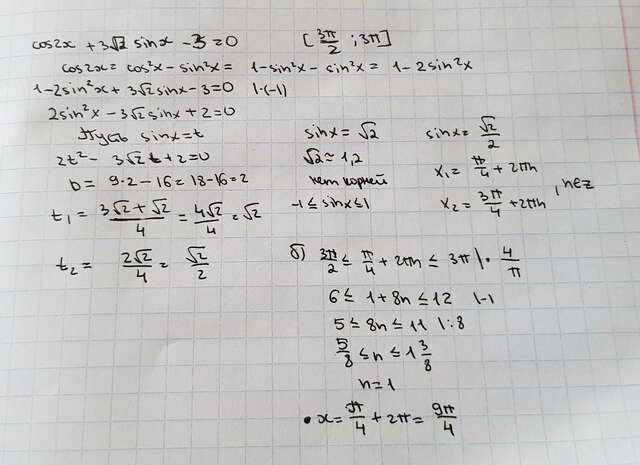 cos2x + 3√2 sinx - 3 = 0 [3π/2 ; 3π]
cos2x = cos²x - sin²x = 1 - sin²x - sin²x = 1 - 2sin²x
1 - 2sin²x + 3√2 sinx - 3 = 0 |·(-1)
2sin²x - 3√2 sinx + 2 = 0
Пусть sinx = t
2t² - 3√2 t + 2 = 0
D = 9·2 - 16 = 18 - 16 = 2
t₁ = (3√2 + √2)/4 = 4√2/4 = √2
t₂ = 2√2/4 = √2/2
sinx = √2
√2 ≈ 1,2
нет корней
-1 ≤ sinx ≤ 1
sinx = √2/2
x₁ = π/4 + 2πn
x₂ = 3π/4 + 2πn , n∈z
б) 3π/2 ≤ π/4 + 2πn ≤ 3π |· 4/π
6 ≤ 1 + 8n ≤ 12 |-1
5 ≤ 8n ≤ 11 |:8
5/8 ≤ n ≤ 1 3/8
n = 1
• x = π/4 + 2π = 9π/4